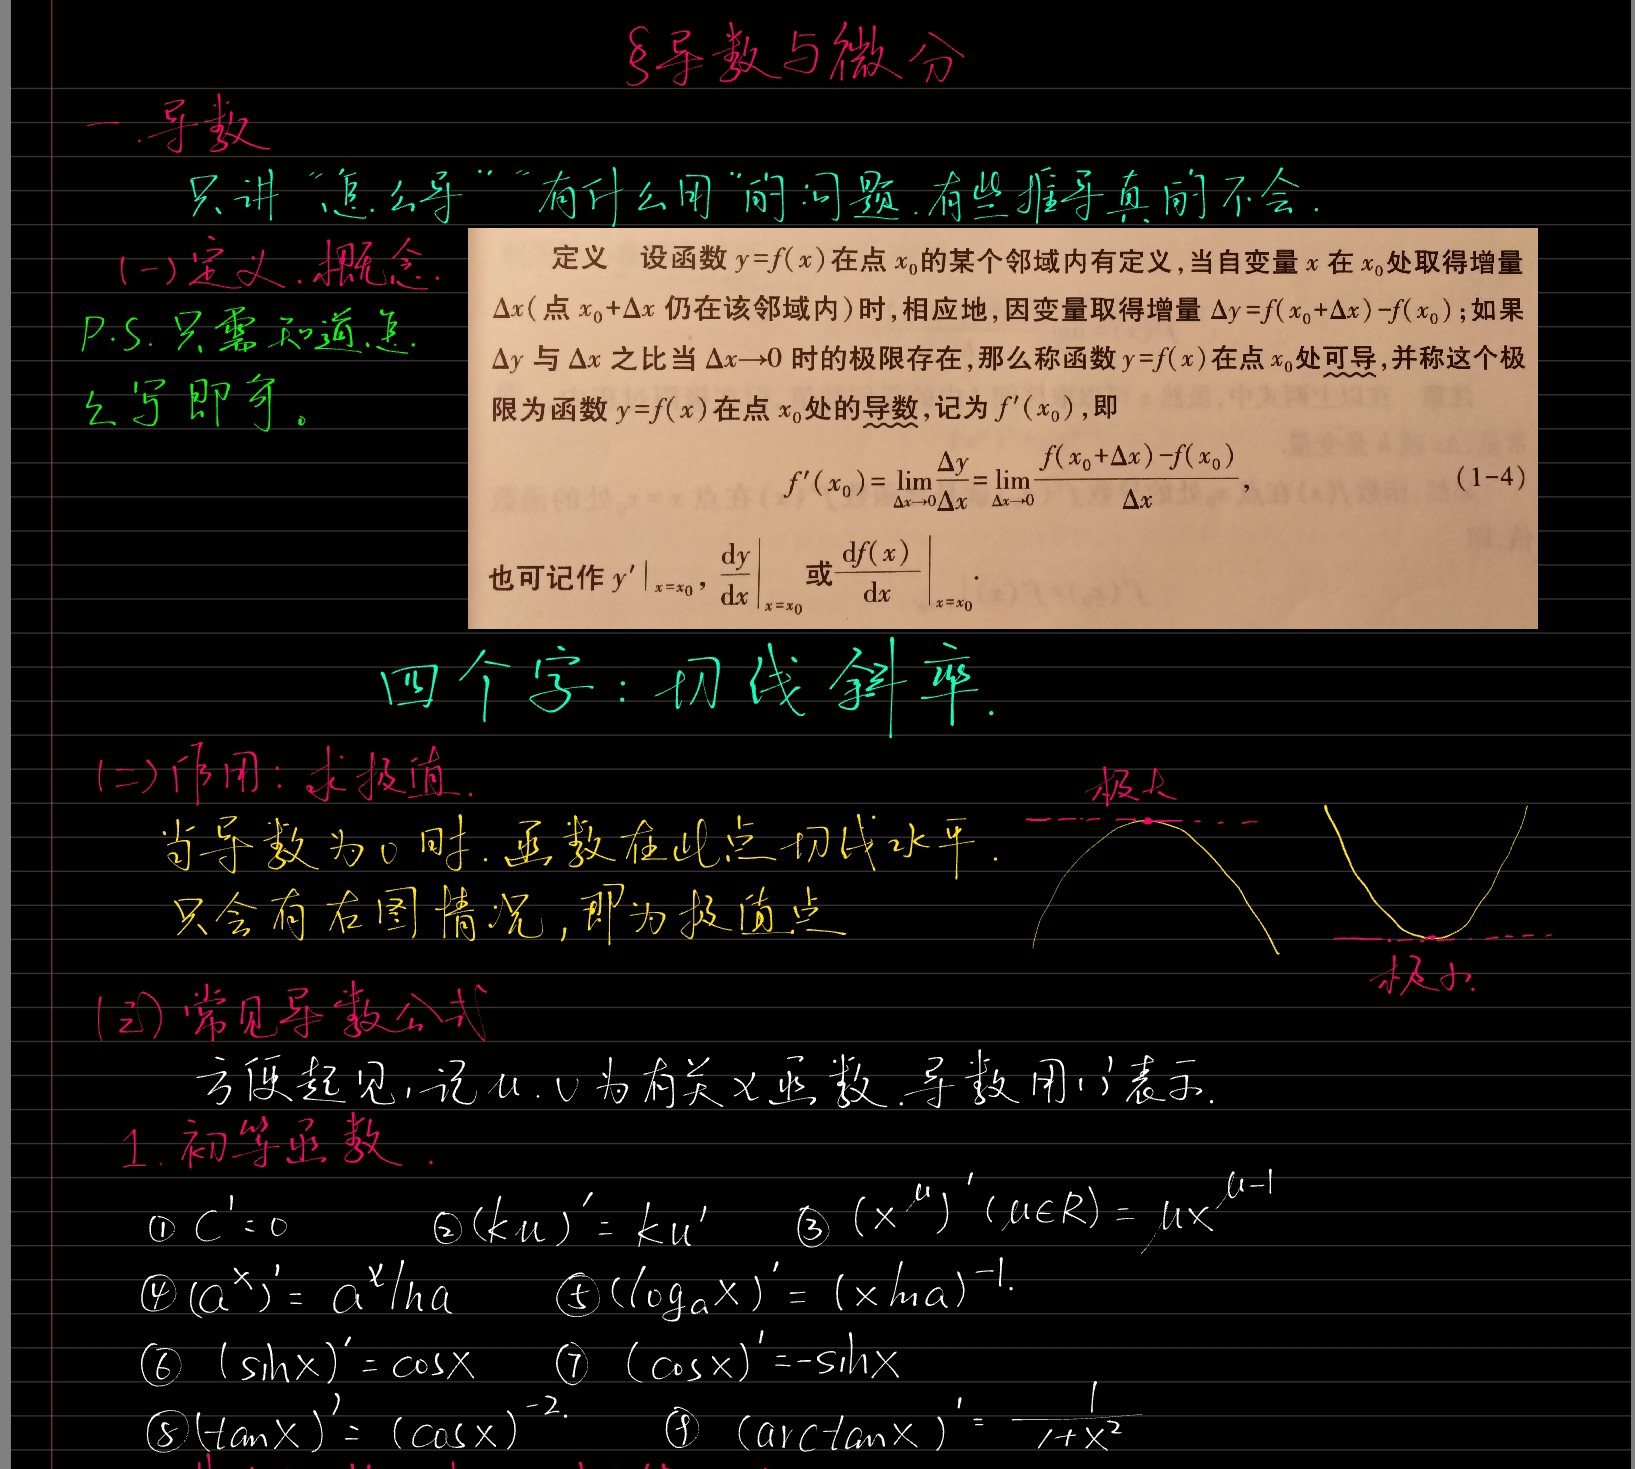 §导数与微分
一.导数
只讲“怎么导”“有什么用”的问题.有些推导真的不会.
(一)定义.概念.
P.S.只需知道怎
么写即可。
定义 设函数 y=f(x)在点 x₀的某个邻域内有定义,当自变量 x 在 x₀处取得增量
Δx(点 x₀+Δx 仍在该邻域内)时,相应地,因变量取得增量 Δy=f(x₀+Δx)-f(x₀);如果
Δy 与 Δx 之比当 Δx→0 时的极限存在,那么称函数 y=f(x)在点 x₀处可导,并称这个极
限为函数 y=f(x)在点 x₀处的导数,记为 f′(x₀),即
f′(x₀)=lim_{Δx→0} Δy/Δx=lim_{Δx→0} (f(x₀+Δx)-f(x₀))/Δx, (1-4)
也可记作 y′|_{x=x₀}, dy/dx|_{x=x₀} 或 df(x)/dx|_{x=x₀}.
四个字:切线斜率.
(二)作用:求极值.
极大
当导数为0时.函数在此点切线水平.
只会有右图情况,即为极值点
极小.
(三)常见导数公式
方便起见,记u.v为有关x函数.导数用()′表示.
1.初等函数.
① C′=0 ②(ku)′=ku′ ③(x^μ)′(μ∈R)=μx^{μ-1}
④(a^x)′=a^x lna ⑤(log_a x)′=(xlna)^{-1}.
⑥ (sinx)′=cosx ⑦ (cosx)′=-sinx
⑧(tanx)′=(cosx)^{-2}. ⑨ (arctanx)′=1/(1+x²)